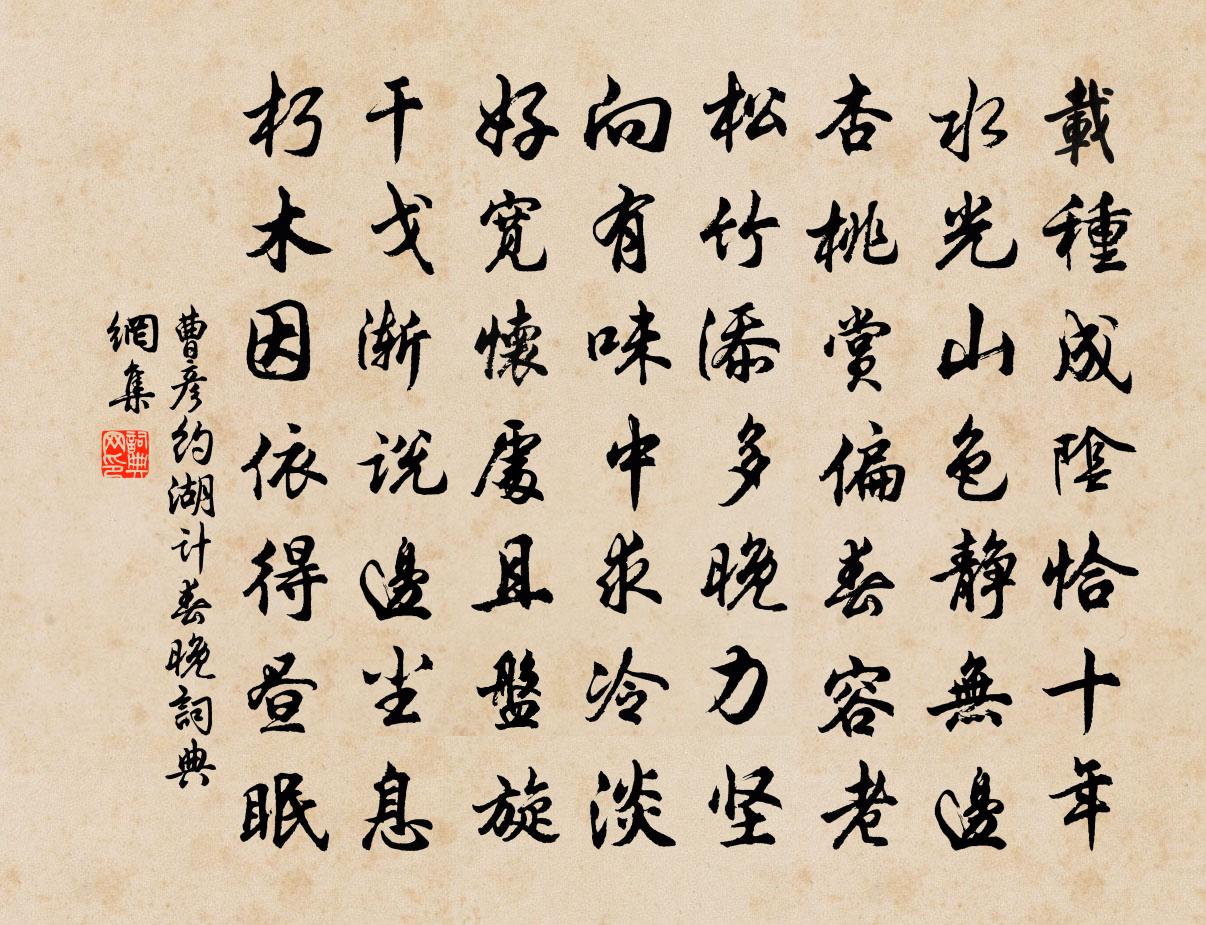 載種成陰恰十年
水光山色静無邊
杏桃賞偏春容老
松竹添多晚力坚
向有味中求冷淡
好寬懷處且盤旋
干戈漸説邊尘息
朽木因依得昼眠
曹彦约湖计春晚詞典
網集
詞典网印